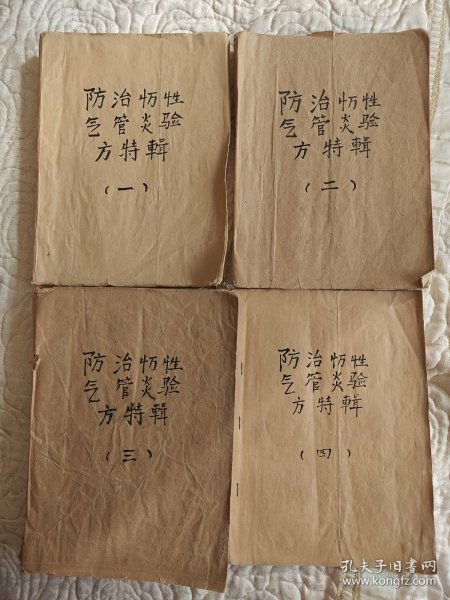 防治慢性
气管炎验
方特輯
（一）
防治慢性
气管炎验
方特輯
（二）
防治慢性
气管炎验
方特輯
（三）
防治慢性
气管炎验
方特輯
（四）
孔夫子旧书网
www.kongfz.com